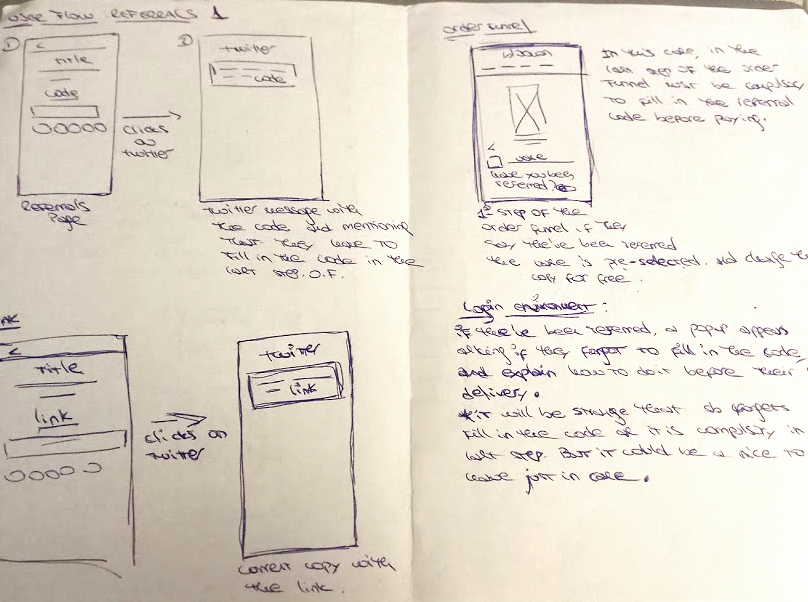 User Flow: REFERRALS 1
1)
Title
code
Referrals
Page
clicks
on
twitter
2)
twitter
code
twitter message with
the code and mentioning
that they have to
fill in the code in the
last step. O.F.
Title
link
clicks on
twitter
twitter
link
current copy with
the link.
order funnel
have you been
referred?
In this case, in the
last step of the order
funnel will be compulsory
to fill in the referral
code before paying.
1º step of the
order funnel if they
say they've been referred
the wine is pre-selected, and change the
copy for free.
Login environment:
if they've been referred, a popup appears
asking if they forgot to fill in the code
and explain how to do it before their
delivery.
*it will be strange that sb forgets
fill in the code as it is compulsory in
last step. But it could be a nice to
have just in case.